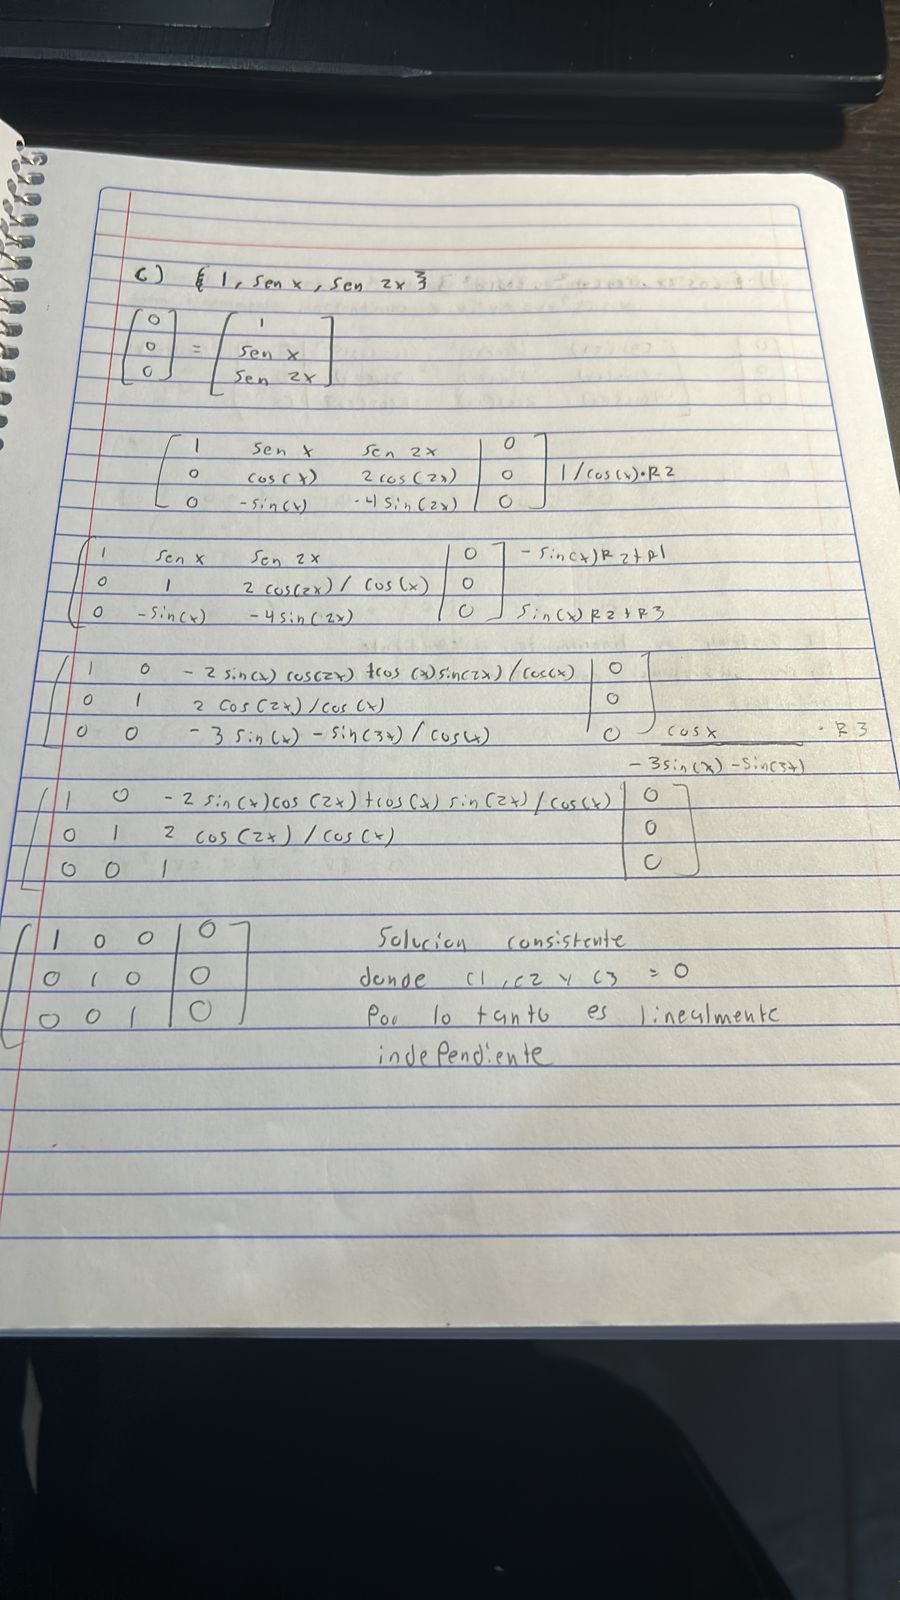 c) { 1, sen x, sen 2x }
[0 0 0] = [1 sen x sen 2x]
1 sen x sen 2x | 0
0 cos(x) 2 cos(2x) | 0 1/cos(x)·R2
0 -sin(x) -4 sin(2x) | 0
1 sen x sen 2x | 0 -sin(x)R2+R1
0 1 2 cos(2x) / cos(x) | 0
0 -sin(x) -4sin(2x) | 0 sin(x) R2+R3
1 0 -2 sin(x) cos(2x) +cos(x)sin(2x)/cos(x) | 0
0 1 2 cos(2x)/cos(x) | 0
0 0 -3 sin(x) - sin(3x)/cos(x) 0 cosx · R3
-3sin(x)-sin(3x)
1 0 -2 sin(x)cos(2x)+cos(x) sin(2x)/cos(x) | 0
0 1 2 cos(2x)/cos(x) | 0
0 0 1 | 0
1 0 0 | 0 Solucion consistente
0 1 0 | 0 donde c1, c2 y c3 = 0
0 0 1 | 0 Por lo tanto es linealmente
independiente